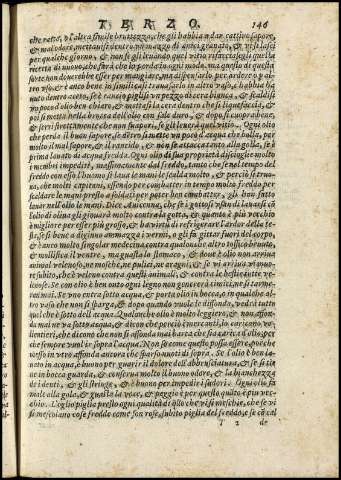 TERZO. 146
che ratto, o l'altra simile bruttezza, che gli habbia a dar cattivo sapore,
& mal odore, mettansi dentro un mazzo di anici granati, & vi si lasci
per qualche giorno, & non se gli levando quel vitio rifacciasegli quella
ricetta di nuovo, che sarà che lo perda in ogni modo. ma quello di questa
sorte non dovrebbe esser per mangiare, ma dispensarlo per ardere, o per al
tro uso, & anco bene in simili casi transarlo in altro vaso, & habbia ha
dentro ceste, & se è rancio piglisi un pezzo di cera bianca, & scaldisi
un poco d'olio ben chiaro, & mettasi la cera dentro che si liquefaccia, &
poi si metta nella brossa dell'olio con sale duro, & dopò si cuopra bene,
& serri strettamente che non svapori, se gli leverà quel vitio. Ogni olio
che perda il buon sapore, se dietro si mette un poco d'acqua che bolla, per
molto il mal sapore, & il rancido, & non se attaccanto alla gola, se è
prima lavato di acqua fredda. Ogni olio di sua proprietà discioglie molto
i membri impediti, massimamente dal freddo, tanto che se nel tempo del
freddo con esso l'huomo si lava le mani le scalda molto, & perciò si truo-
va, che molti capitani, essendo per combatter in tempo molto freddo per
scaldare le mani presto a soldati per poter ben combatter, gli han fatto
lavar nell'olio le mani. Dice Avicenna, che se i gottosi usan di lavarsi cō
l'olio di oliva gli giova molto contra la gotta, & quanto è più vecchio
è migliore per esser più grosso, & ha virtù di refrigerare l'ardor della te-
sta, se si beve a digiuno ammazza i vermi, o gli fa gittar fuori del corpo,
& è anco molto singolar medecina contra qualunche altro tossico bevuto,
& mollifica il ventre, ma guasta lo stomaco, & dove è olio non arriva
animal velenoso, ne mosche, ne pulici, ne aragni, & se vi arriva muore
subito, che è veleno contra questi animali, & contra le bestiolette ve-
lenose. Se con olio è ben onto ogni legno non genererà tinici, ne si tarme-
ranno. Se uno entra sotto acqua, & porte olio in bocca, o in qualche al-
tro vaso che non si sparga, & dopo quando vuole il diffonde, vedrà tutto
quel che è sotto dell'acqua. Qualunche olio è molto leggiero, & non affon-
da mai ne va sotto acqua, & dicon che perciò i mercanti, lo caricano vo-
lentieri, che dicono che non si affonda mai barca che sia carica d'olio, per
che sempre vuol ir sopra l'acqua. Non so come questo possa essere, poi che
vasello in vitro affonda ancora che stia suonti di sopra. Se l'olio è ben la-
vato in acqua, è buono per guarir il dolore dell'abbruciatura, & se si tie
ne in bocca guarda, & conserva molto il buono odore, & la bianchezza
di i denti, & gli stringe, & è buono per impedire i sudori. Ogni olio fa
male alla gola, & guasta la voce, & peggio è per questo quāto è più vec-
chio. L'oglio piglia presto ogni qualità d'q̃llo che visi meschie, che se vi
si mescolano cose fredde come son rose, subito piglia del freddo, e se cō cal
T 2 de